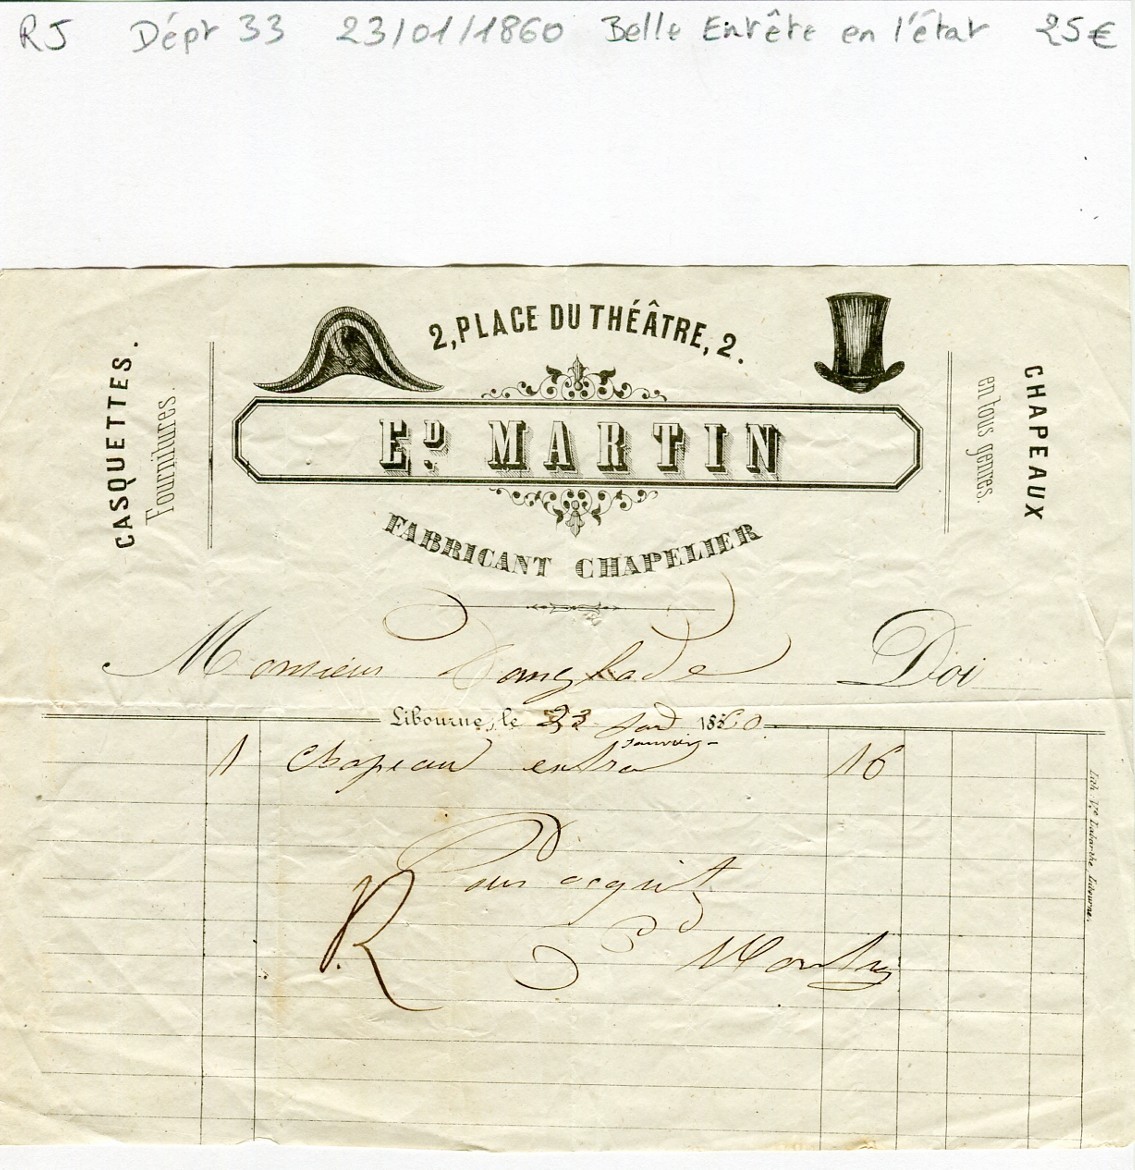 RJ Dépt 33 23/01/1860 Belle Entête en l'état 25€
2, PLACE DU THÉÂTRE, 2.
CASQUETTES.
Fournitures
CHAPEAUX
en tous genres.
ED. MARTIN
FABRICANT CHAPELIER
Monsieur Danglade Doi
Libourne, le 23 1860
Janvier
1 Chapeau extra 16
Pour acquit
R E Martin
Lith. Vve Labarthe Libourne.